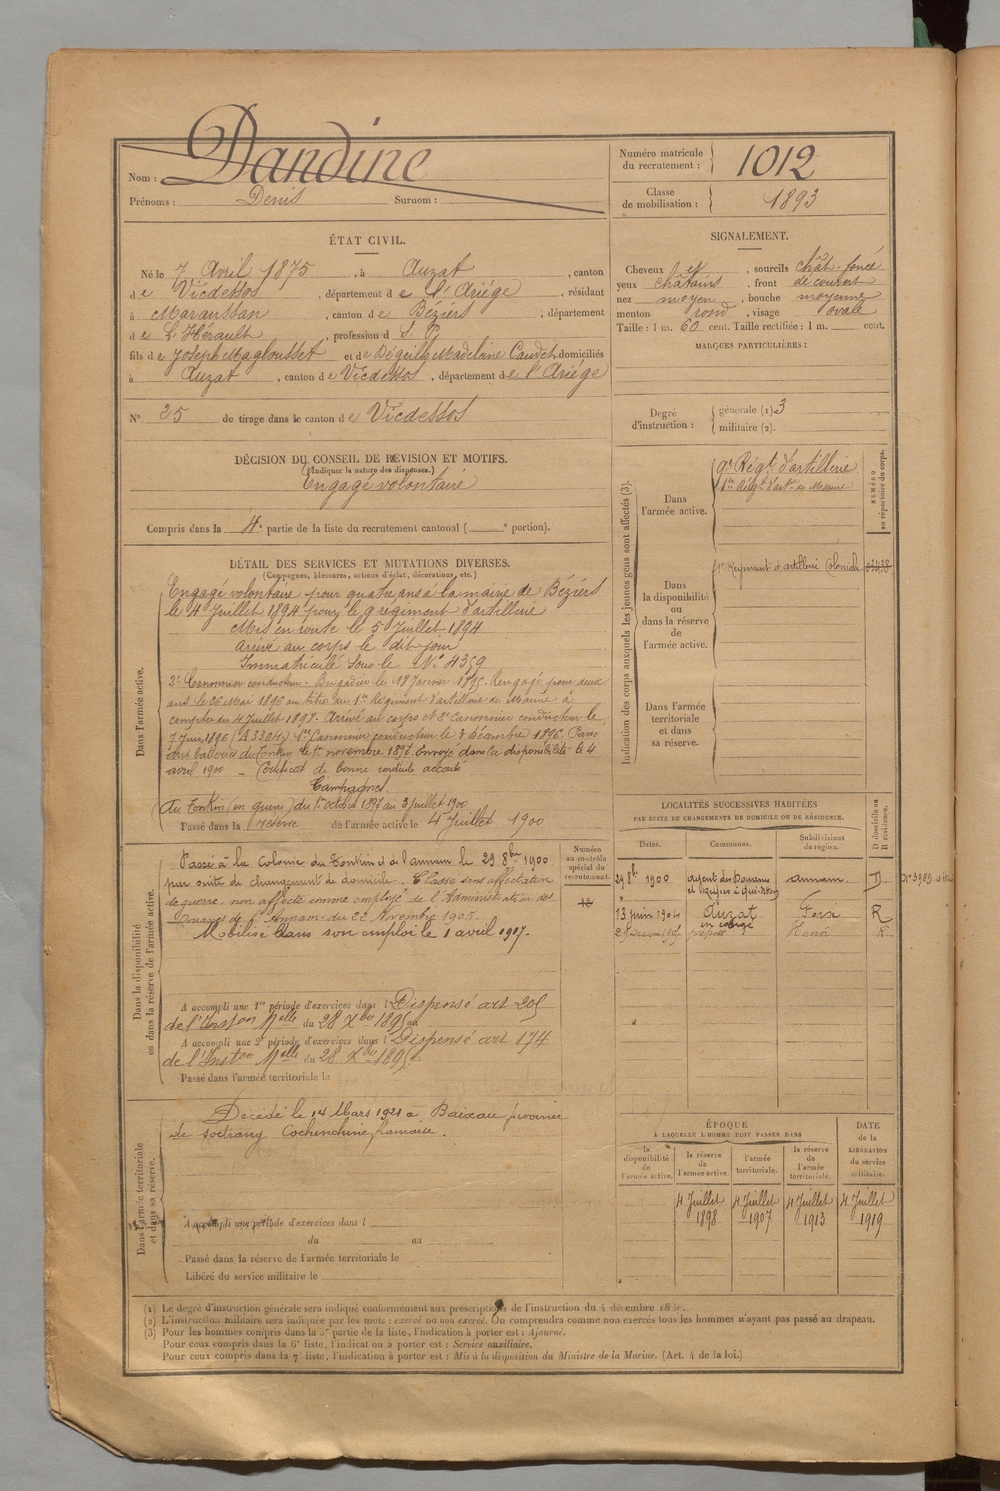 Nom : Dandine
Prénoms : Denis Surnom :
Numéro matricule du recrutement : 1012
Classe de mobilisation : 1893
ÉTAT CIVIL.
Né le 7 Avril 1875, à Auzat, canton
de Vicdessos, département de l'Ariége, résidant
à Maraussan, canton de Béziers, département
de L'Hérault, profession d S. P.
fils de Joseph Maglousset et de Madeleine Caudet, domiciliés
à Auzat, canton de Vicdessos, département de l'Ariége
N° 25 de tirage dans le canton de Vicdessos
SIGNALEMENT.
Cheveux et, sourcils chât-foncé
yeux châtains, front découvert
nez moyen, bouche moyenne
menton rond, visage ovale
Taille : 1 m. 60 cent. Taille rectifiée : 1 m. cent.
MARQUES PARTICULIÈRES :
Degré d'instruction : générale (1) 3
militaire (2).
DÉCISION DU CONSEIL DE REVISION ET MOTIFS.
(Indiquer la nature des dispenses.)
Engagé volontaire
Compris dans la 4e partie de la liste du recrutement cantonal ( e portion).
DÉTAIL DES SERVICES ET MUTATIONS DIVERSES.
(Campagnes, blessures, actions d'éclat, décorations, etc.)
Dans l'armée active.
Engagé volontaire pour quatre ans à la mairie de Béziers
le 4 Juillet 1894 pour le 9 régiment d'artillerie
Mis en route le 5 Juillet 1894
Arrivé au corps le dit jour
Immatriculé sous le N° 4359
2e Canonnier conducteur. Brigadier le 19 Janvier 1895. Rengagé pour deux
ans le 26 Mai 1896 au titre du 1er Régiment d'artillerie de Marine à
compter du 4 Juillet 1897. Arrivé au corps et 2e Canonnier conducteur le
7 Juin 1896 (A 3304) 1er Canonnier conducteur le 8 décembre 1896. Passé
aux batteries du Tonkin le 1er novembre 1897. Envoyé dans la disponibilité le 4
avril 1900 - Certificat de bonne conduite accordé
Campagnes.
Au Tonkin (en guerre) du 1er octobre 1897 au 3 juillet 1900
Passé dans la réserve de l'armée active le 4 Juillet 1900
Indication des corps auxquels les jeunes gens sont affectés (3).
NUMÉRO au répertoire du corps.
Dans l'armée active.
9e Régt d'artillerie
1er Régt d'artie de Marine
Dans la disponibilité ou dans la réserve de l'armée active.
1er Régiment d'artillerie Coloniale
Dans l'armée territoriale et dans sa réserve.
Dans la disponibilité ou dans la réserve de l'armée active.
Passé à la Colonie du Tonkin et de l'annam le 29 8bre 1900
par suite de changement de domicile. Classé sans affectation
de guerre. non affecté comme employé de l'Administration des
Douanes de l'Annam. du 22 Novembre 1905.
Mobilisé dans son emploi le 1 avril 1917.
Numéro au contrôle spécial du recrutement.
A accompli une 1re période d'exercices dans l Dispensé art 205
de l'Inston Melle du 28 Xbre 1895 au
A accompli une 2e période d'exercices dans l Dispensé art 174
de l'Inston Melle du 28 Xbre 1895 au
Passé dans l'armée territoriale le
LOCALITÉS SUCCESSIVES HABITÉES
PAR SUITE DE CHANGEMENTS DE DOMICILE OU DE RÉSIDENCE.
Dates. Communes. Subdivisions de région. D domicile ou R résidence.
29 8bre 1900 agent des Douanes et Régies à Annam. D
13 juin 1904 Auzat en congé Foix R
1905 Hanoï R
Dans l'armée territoriale et dans sa réserve.
Décédé le 14 Mars 1921 à Baixau province
de Soctrang Cochinchine française.
A accompli une période d'exercices dans l
du au
Passé dans la réserve de l'armée territoriale le
Libéré du service militaire le
ÉPOQUE
A LAQUELLE L'HOMME DOIT PASSER DANS
la disponibilité de l'armée active. la réserve de l'armée active. l'armée territoriale. la réserve de l'armée territoriale. DATE de la LIBÉRATION du service militaire.
4 Juillet 1898 4 Juillet 1907 4 Juillet 1913 4 Juillet 1919
(1) Le degré d'instruction générale sera indiqué conformément aux prescriptions de l'instruction du 4 décembre
(2) L'instruction militaire sera indiquée par les mots : exercé ou non exercé. On comprendra comme non exercés tous les hommes n'ayant pas passé au drapeau.
(3) Pour les hommes compris dans la 5e partie de la liste, l'indication à porter est : Ajourné.
Pour ceux compris dans la 6e liste, l'indication à porter est : Service auxiliaire.
Pour ceux compris dans la 7e liste, l'indication à porter est : Mis à la disposition du Ministre de la Marine. (Art. 4 de la loi.)